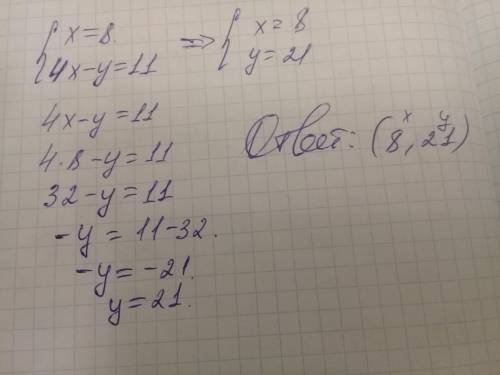 { x=8. => { x=8
4x-y=11 y=21
4x-y=11
4·8-y=11
32-y=11
-y=11-32.
-y=-21.
y=21.
x y
Ответ: (8,21)